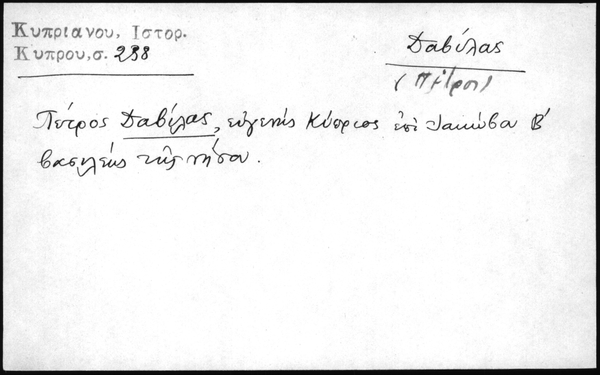 Κυπριανου, Ιστορ.
Κυπρου,σ. 238
Δαβίλας
(Πέτρος)
Πέτρος Δαβίλας, εὐγενής Κύπριος ἐπί Ἰακώβου Β΄
βασιλέως τῆς νήσου.